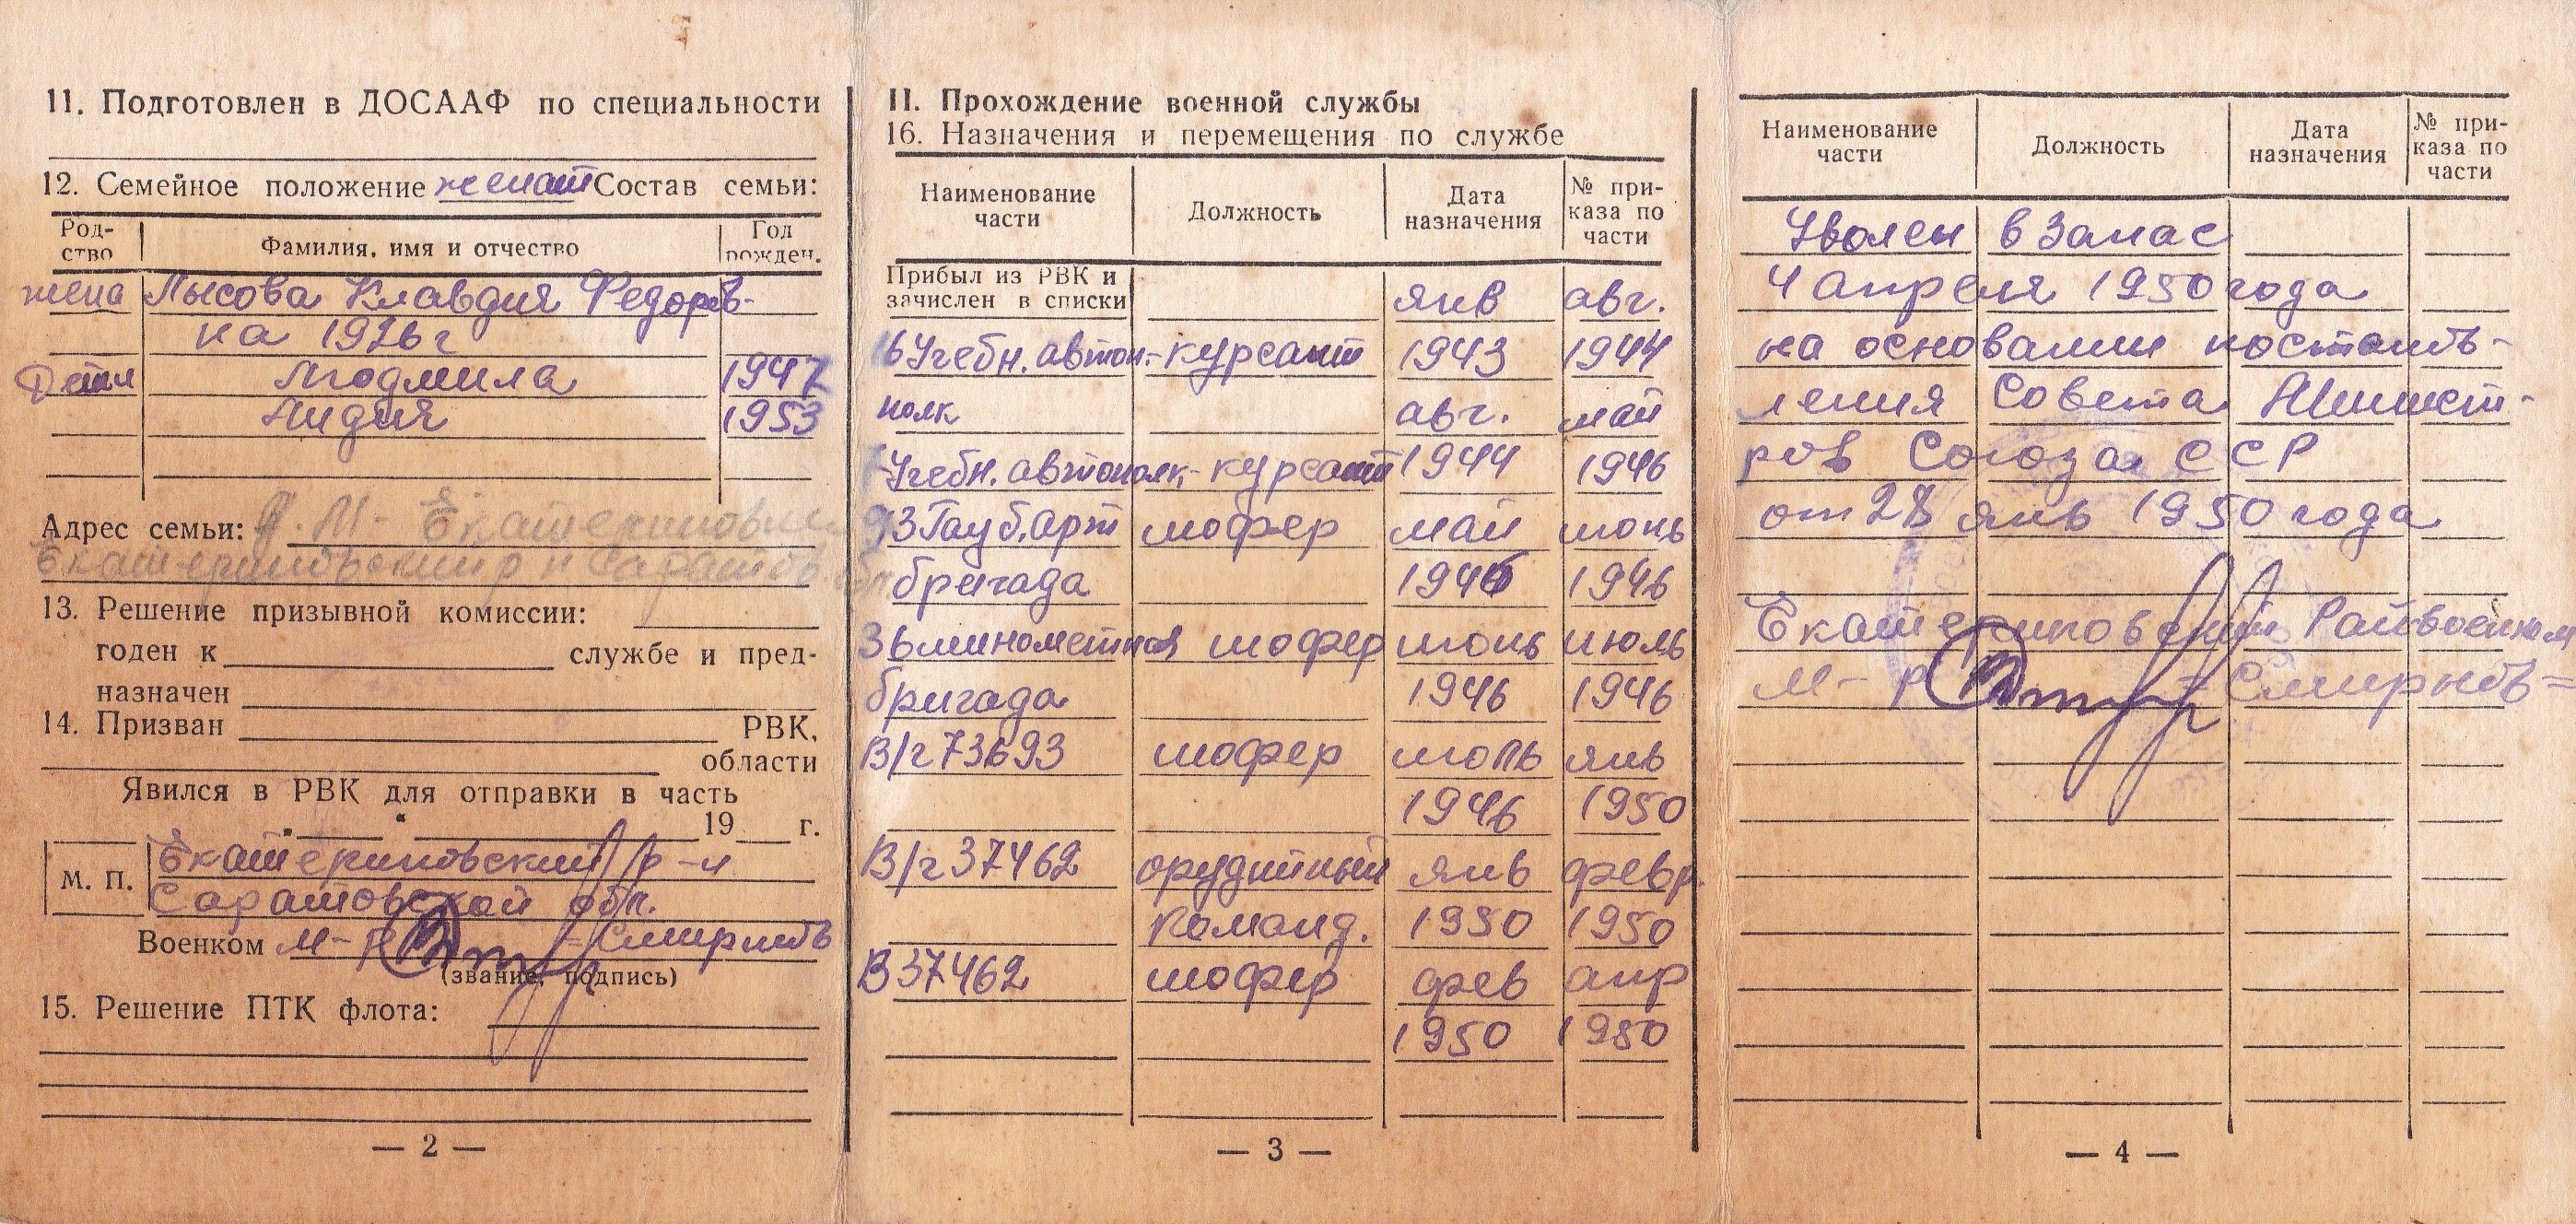 11. Подготовлен в ДОСААФ по специальности
12. Семейное положение женат Состав семьи:
Род-
ство
Фамилия, имя и отчество
Год
рожден.
жена Лысова Клавдия Федоров-
на 1926 г
Дети Людмила 1947
Лидия 1953
Адрес семьи: Екатериновка
Екатериновский р н Саратов обл
13. Решение призывной комиссии:
годен к службе и пред-
назначен
14. Призван РВК,
области
Явился в РВК для отправки в часть
" " 19 г.
М. П.
Екатериновский р-н
Саратовской обл.
Военком м-р =Смирнов
(звание, подпись)
15. Решение ПТК флота:
— 2 —
II. Прохождение военной службы
16. Назначения и перемещения по службе
Наименование
части
Должность
Дата
назначения
№ при-
каза по
части
Прибыл из РВК и
зачислен в списки
янв авг.
16 Учебн. автом.- курсант 1943 1944
полк авг. май
7 Учебн. автополк- курсант 1944 1946
93 Гауб. Арт шофер май июнь
бригада 1946 1946
36 минометная шофер июнь июль
бригада 1946 1946
В/ч 73693 шофер июль янв
1946 1950
В/ч 37462 орудийный янв февр.
команд. 1950 1950
В 37462 шофер фев апр
1950 1950
— 3 —
Наименование
части
Должность
Дата
назначения
№ при-
каза по
части
Уволен в запас
4 апреля 1950 года
на основании постанов-
ления Совета Минист-
ров Союза ССР
от 28 янв 1950 года
Екатериновский Райвоенком
м-р =Смирнов=
— 4 —